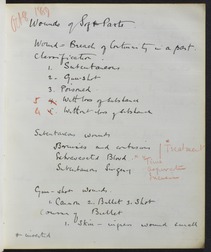 Wounds of Soft Parts
Wound = Breach of Continuity in a part
Classification -
1. Subcutaneous
2. Gun-shot
3. Poisoned
5 With loss of substance
4 Without loss of substance
Subcutaneous wounds
Bruises and contusions
Extravasated Blood
Subcutaneous Surgery
Treatment
Gun-shot wounds
1. Canon 2. Bullet 3. Shot
Bullet
1. Skin - ingress wound small
& inverted